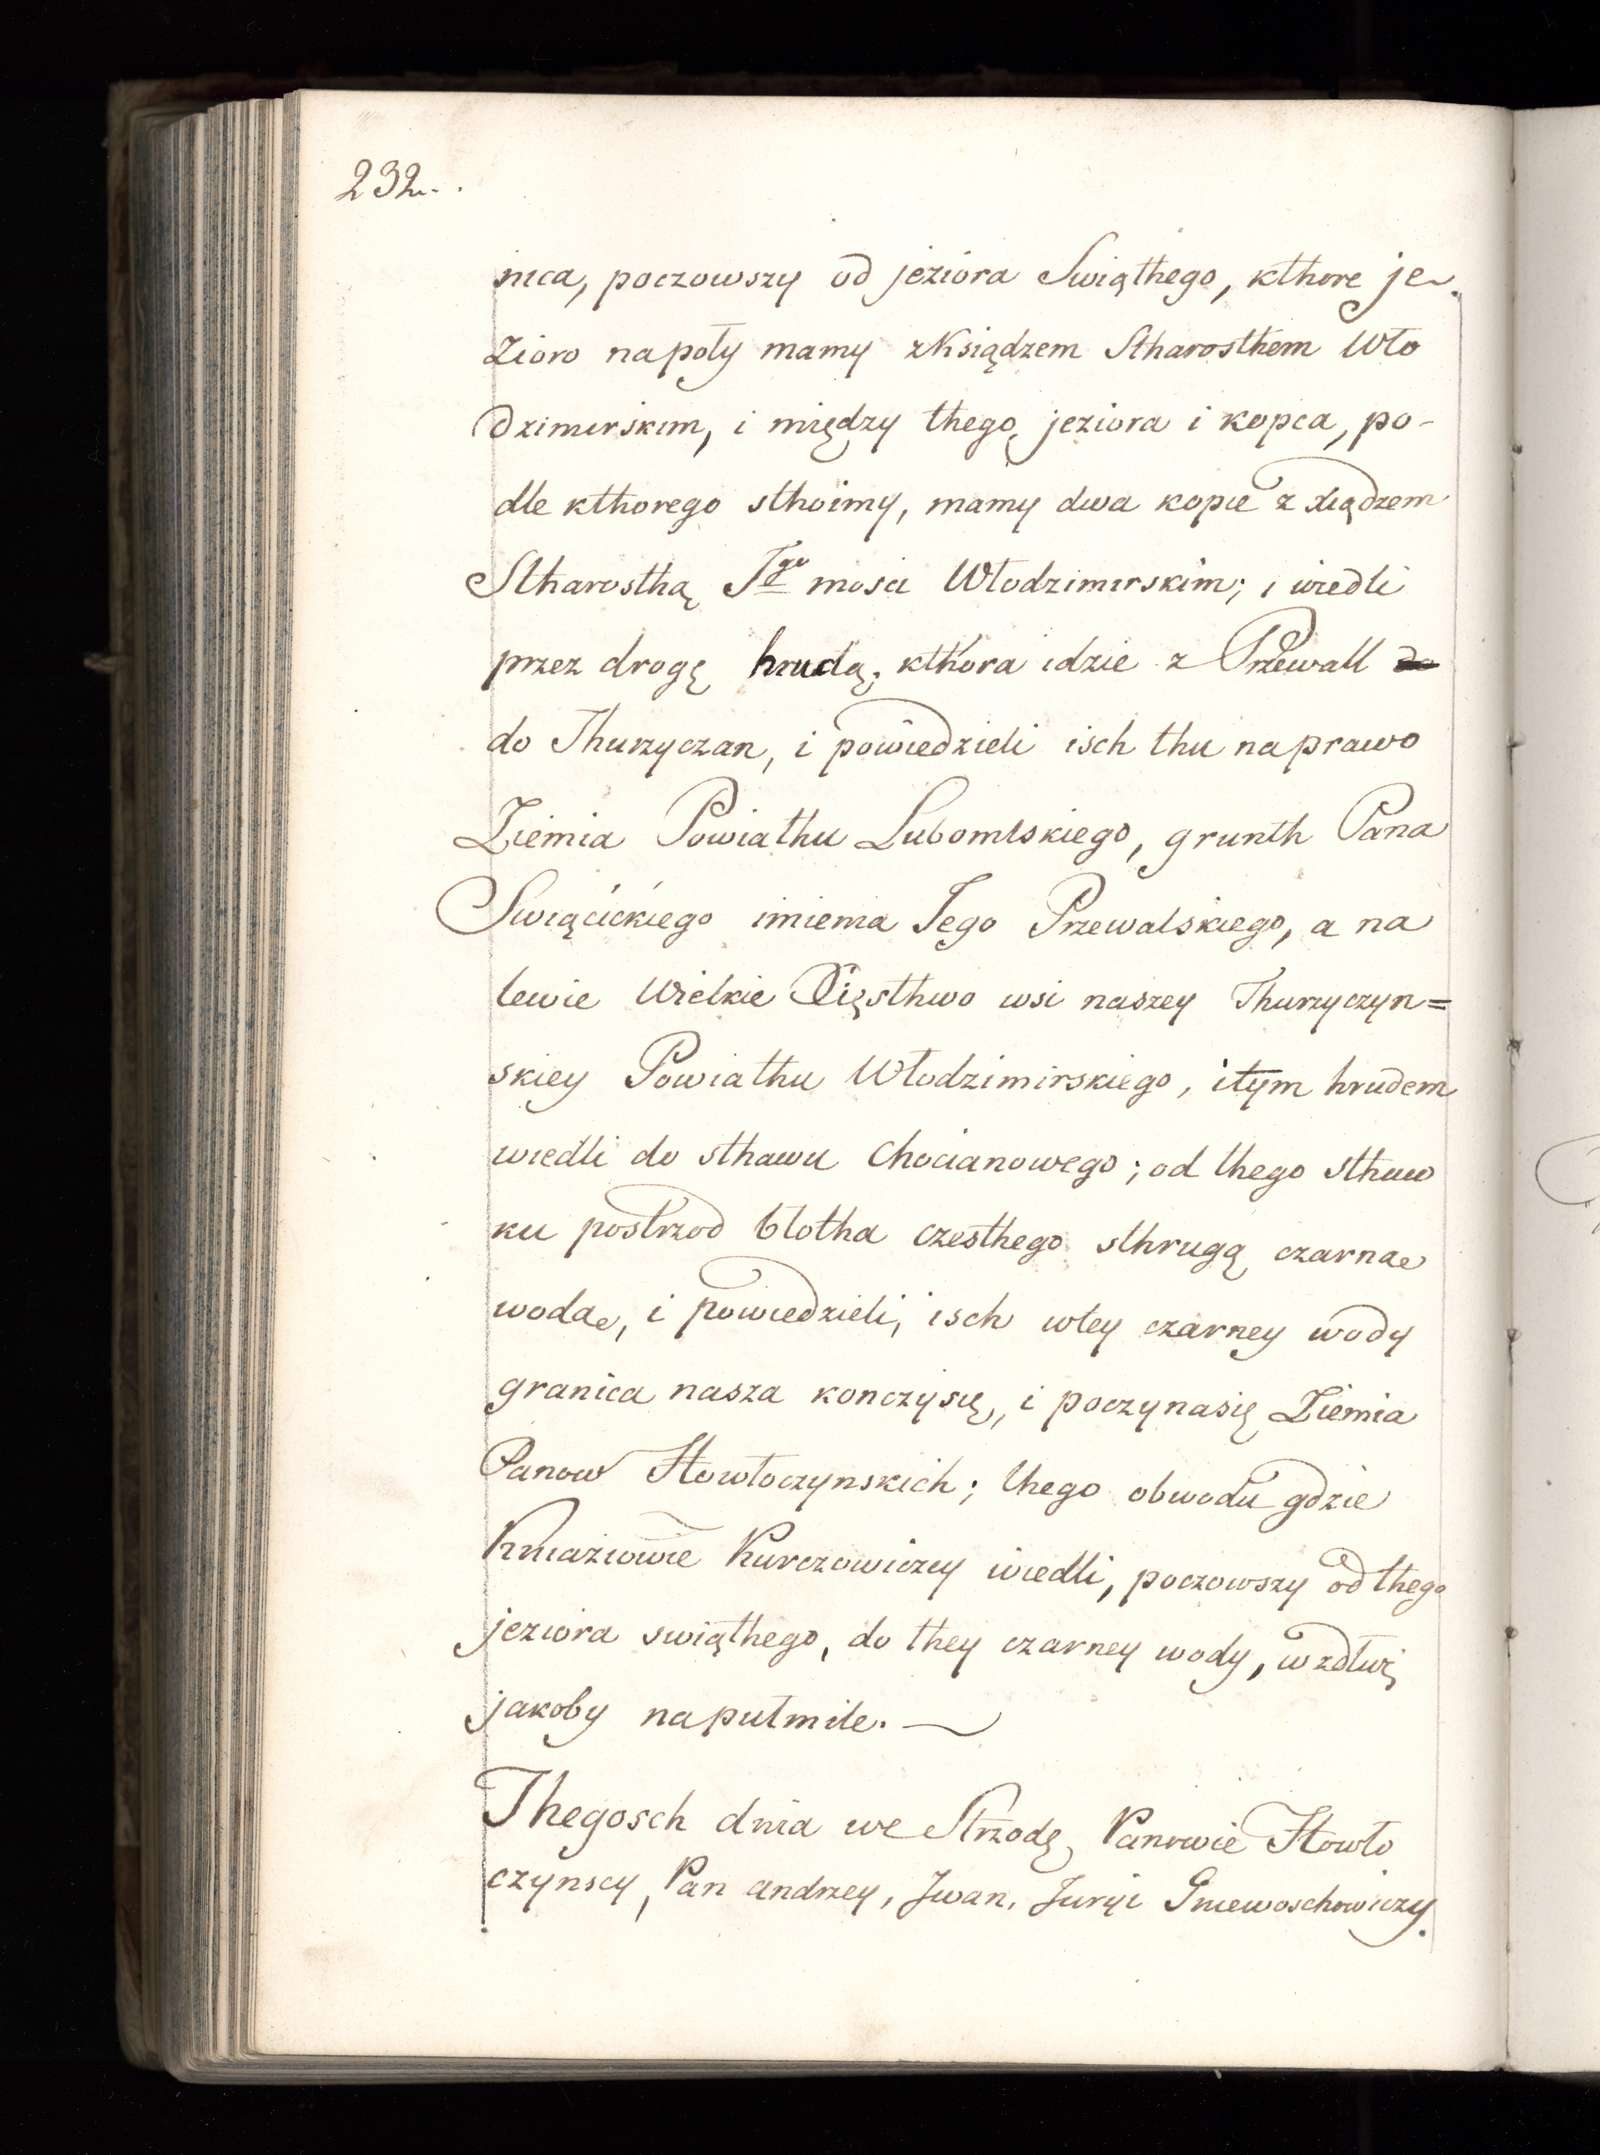 232.
nica, poczowszy od jeziora Swiąthego, kthore je-
zioro napoły mamy zKsiądzem Stharosthem Wło
dzimirskim, i między thego jeziora i kopca, po-
dle kthorego sthoimy, mamy dwa kopce z xiądzem
Stharosthą Jgo mosci Włodzimirskim; i wiedli
przez drogę hrudą, kthora idzie z Przewall do
do Thurzyczan, i powiedzieli isch thu naprawo
Ziemia Powiathu Lubomlskiego, grunth Pana
Swiącickiego imienia Jego Przewalskiego, a na
lewie Wielkie Xięsthwo wsi naszey Thurzyczyn=
skiey Powiathu Włodzimirskiego, itym hrudem
wiedli do sthawu Chocianowego; od thego sthaw
ku postrzod błotha czesthego sthrugą czarnae
wodae, i powiedzieli, isch wtey czarney wody
granica nasza konczysię, i poczynasię Ziemia
Panow Howłoczynskich; thego obwodu gdzie
Kniaziowie Kurczowiczey wiedli, poczowszy od thego
jeziora swiąthego, do they czarney wody, wzdłuż
jakoby napułmile.
Thegosch dnia we Strzodę Panowie Howło
czynscy, Pan andrzey, Jwan, Juryi Gniewoschowiczy.